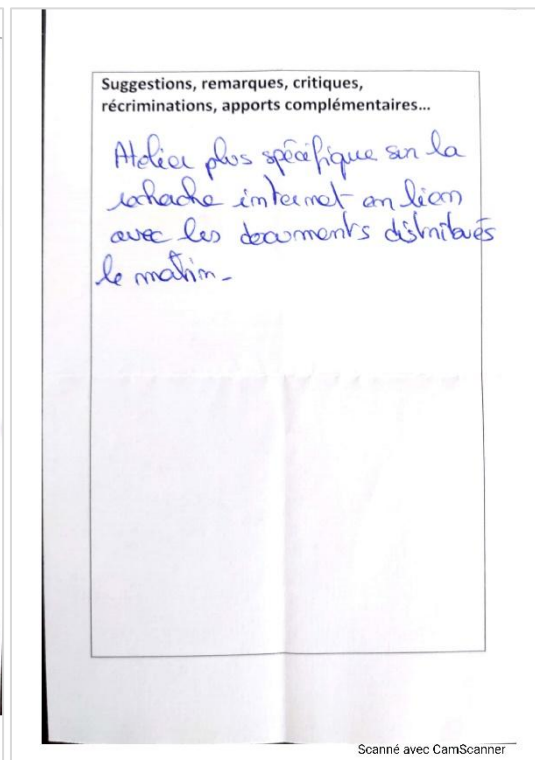 Suggestions, remarques, critiques,
récriminations, apports complémentaires...
Atelier plus spécifique sur la
recherche internet en lien
avec les documents distribués
le matin -
Scanné avec CamScanner